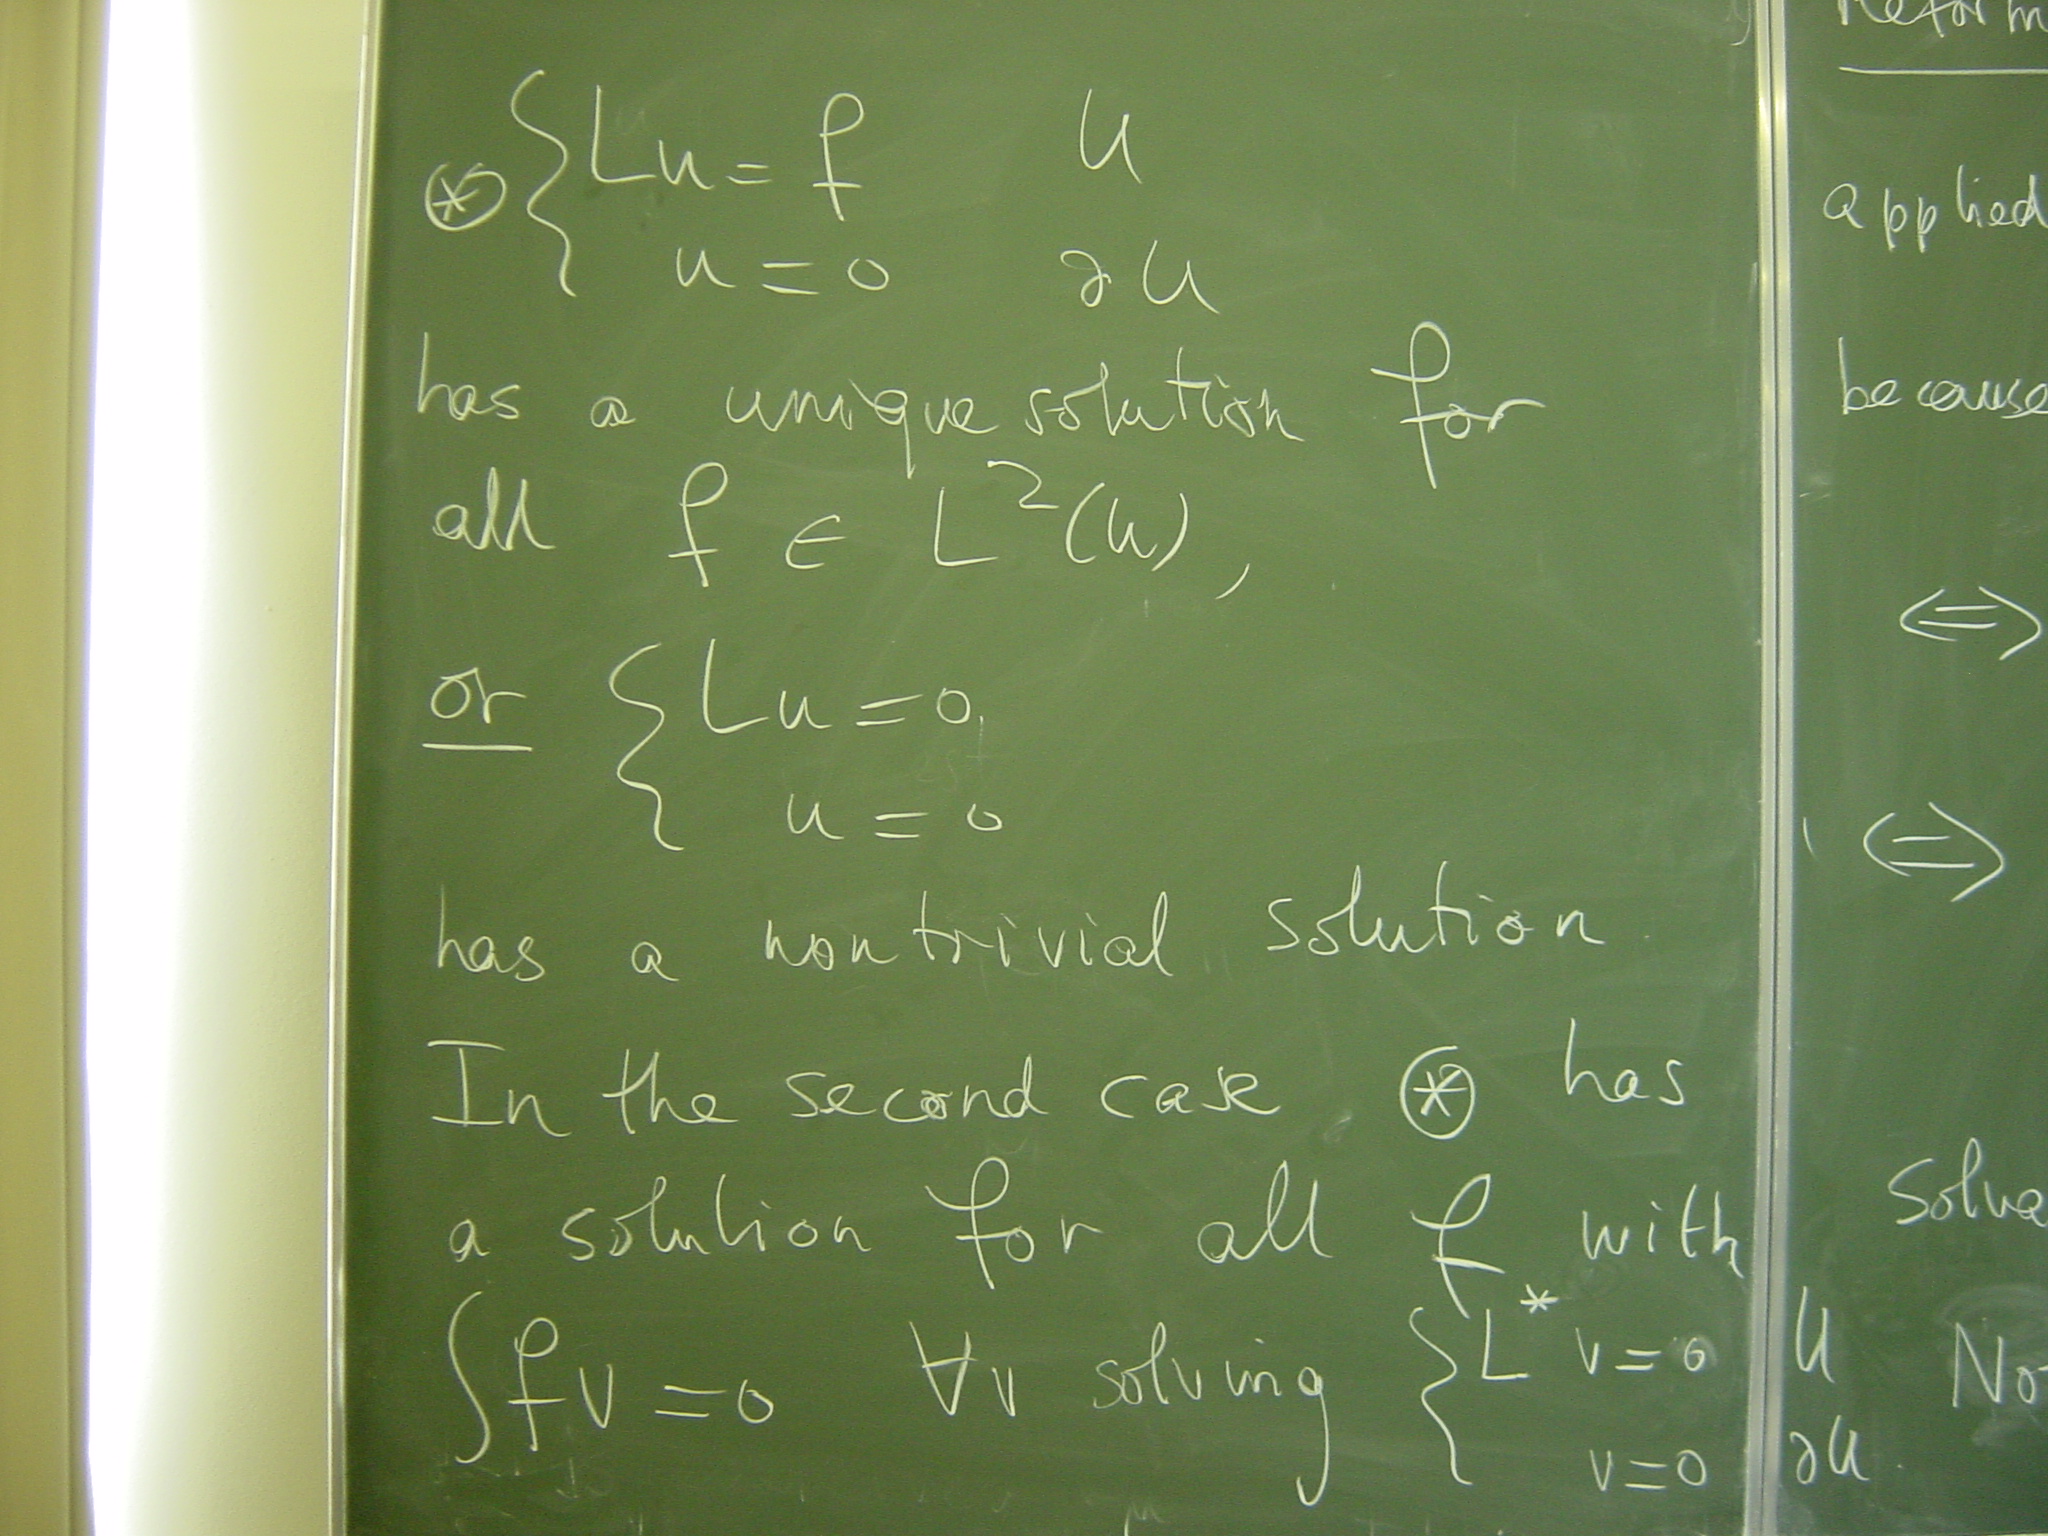 ⊛ { Lu = f U
u = 0 ∂U
has a unique solution for
all f ∈ L²(U),
or { Lu = 0
u = 0
has a nontrivial solution
In the second case ⊛ has
a solution for all f with
∫ f v = 0 ∀v solving { L* v = 0 U
v = 0 ∂U
applied
because
⇔
⇔